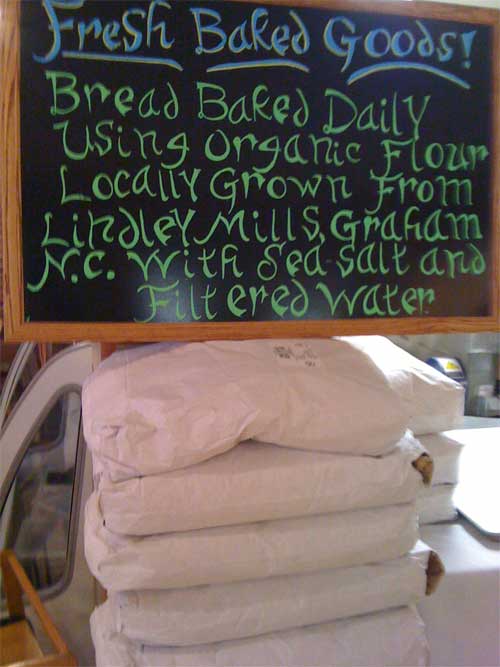 Fresh Baked Goods!
Bread Baked Daily
Using Organic Flour
Locally Grown From
Lindley Mills, Graham
N.C. With Sea Salt and
Filtered Water